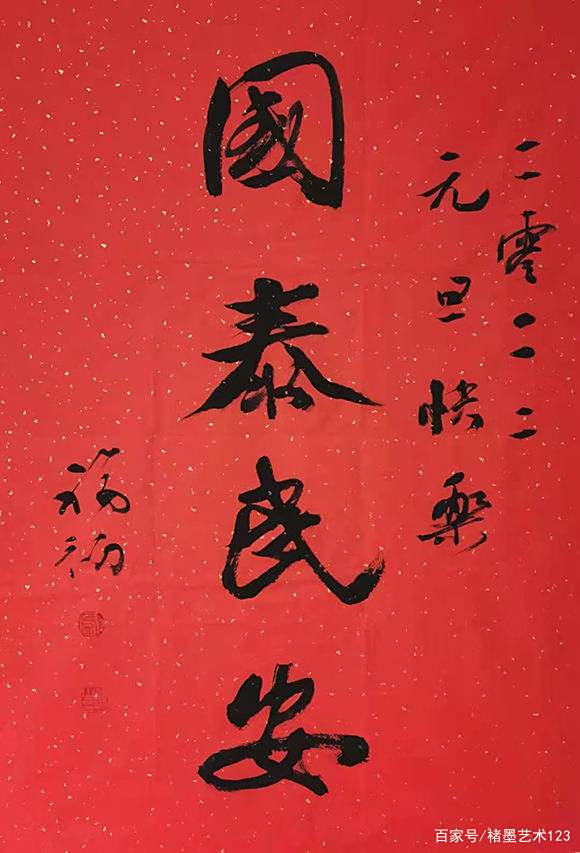 二零二二
元旦快樂
國泰民安
百家号/褚墨艺术123